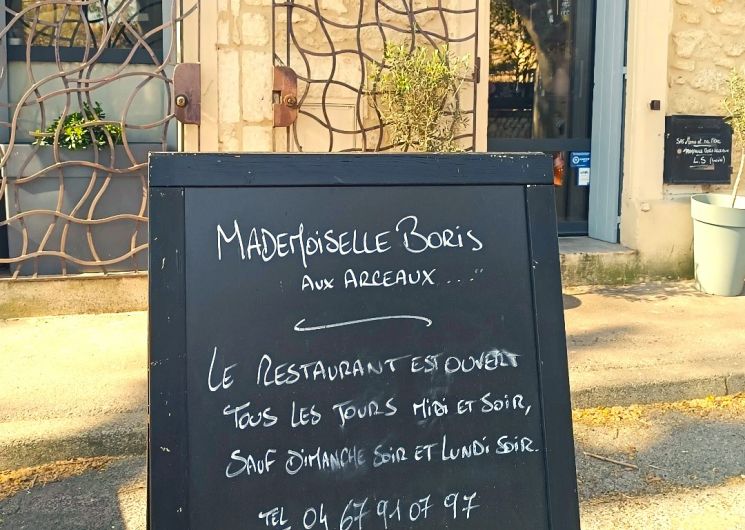 MADEMOISELLE BORIS
AUX ARCEAUX ...."
LE RESTAURANT EST OUVERT
TOUS LES JOURS MIDI ET SOIR,
SAUF DIMANCHE SOIR ET LUNDI SOIR.
TEL 04 67 91 07 97